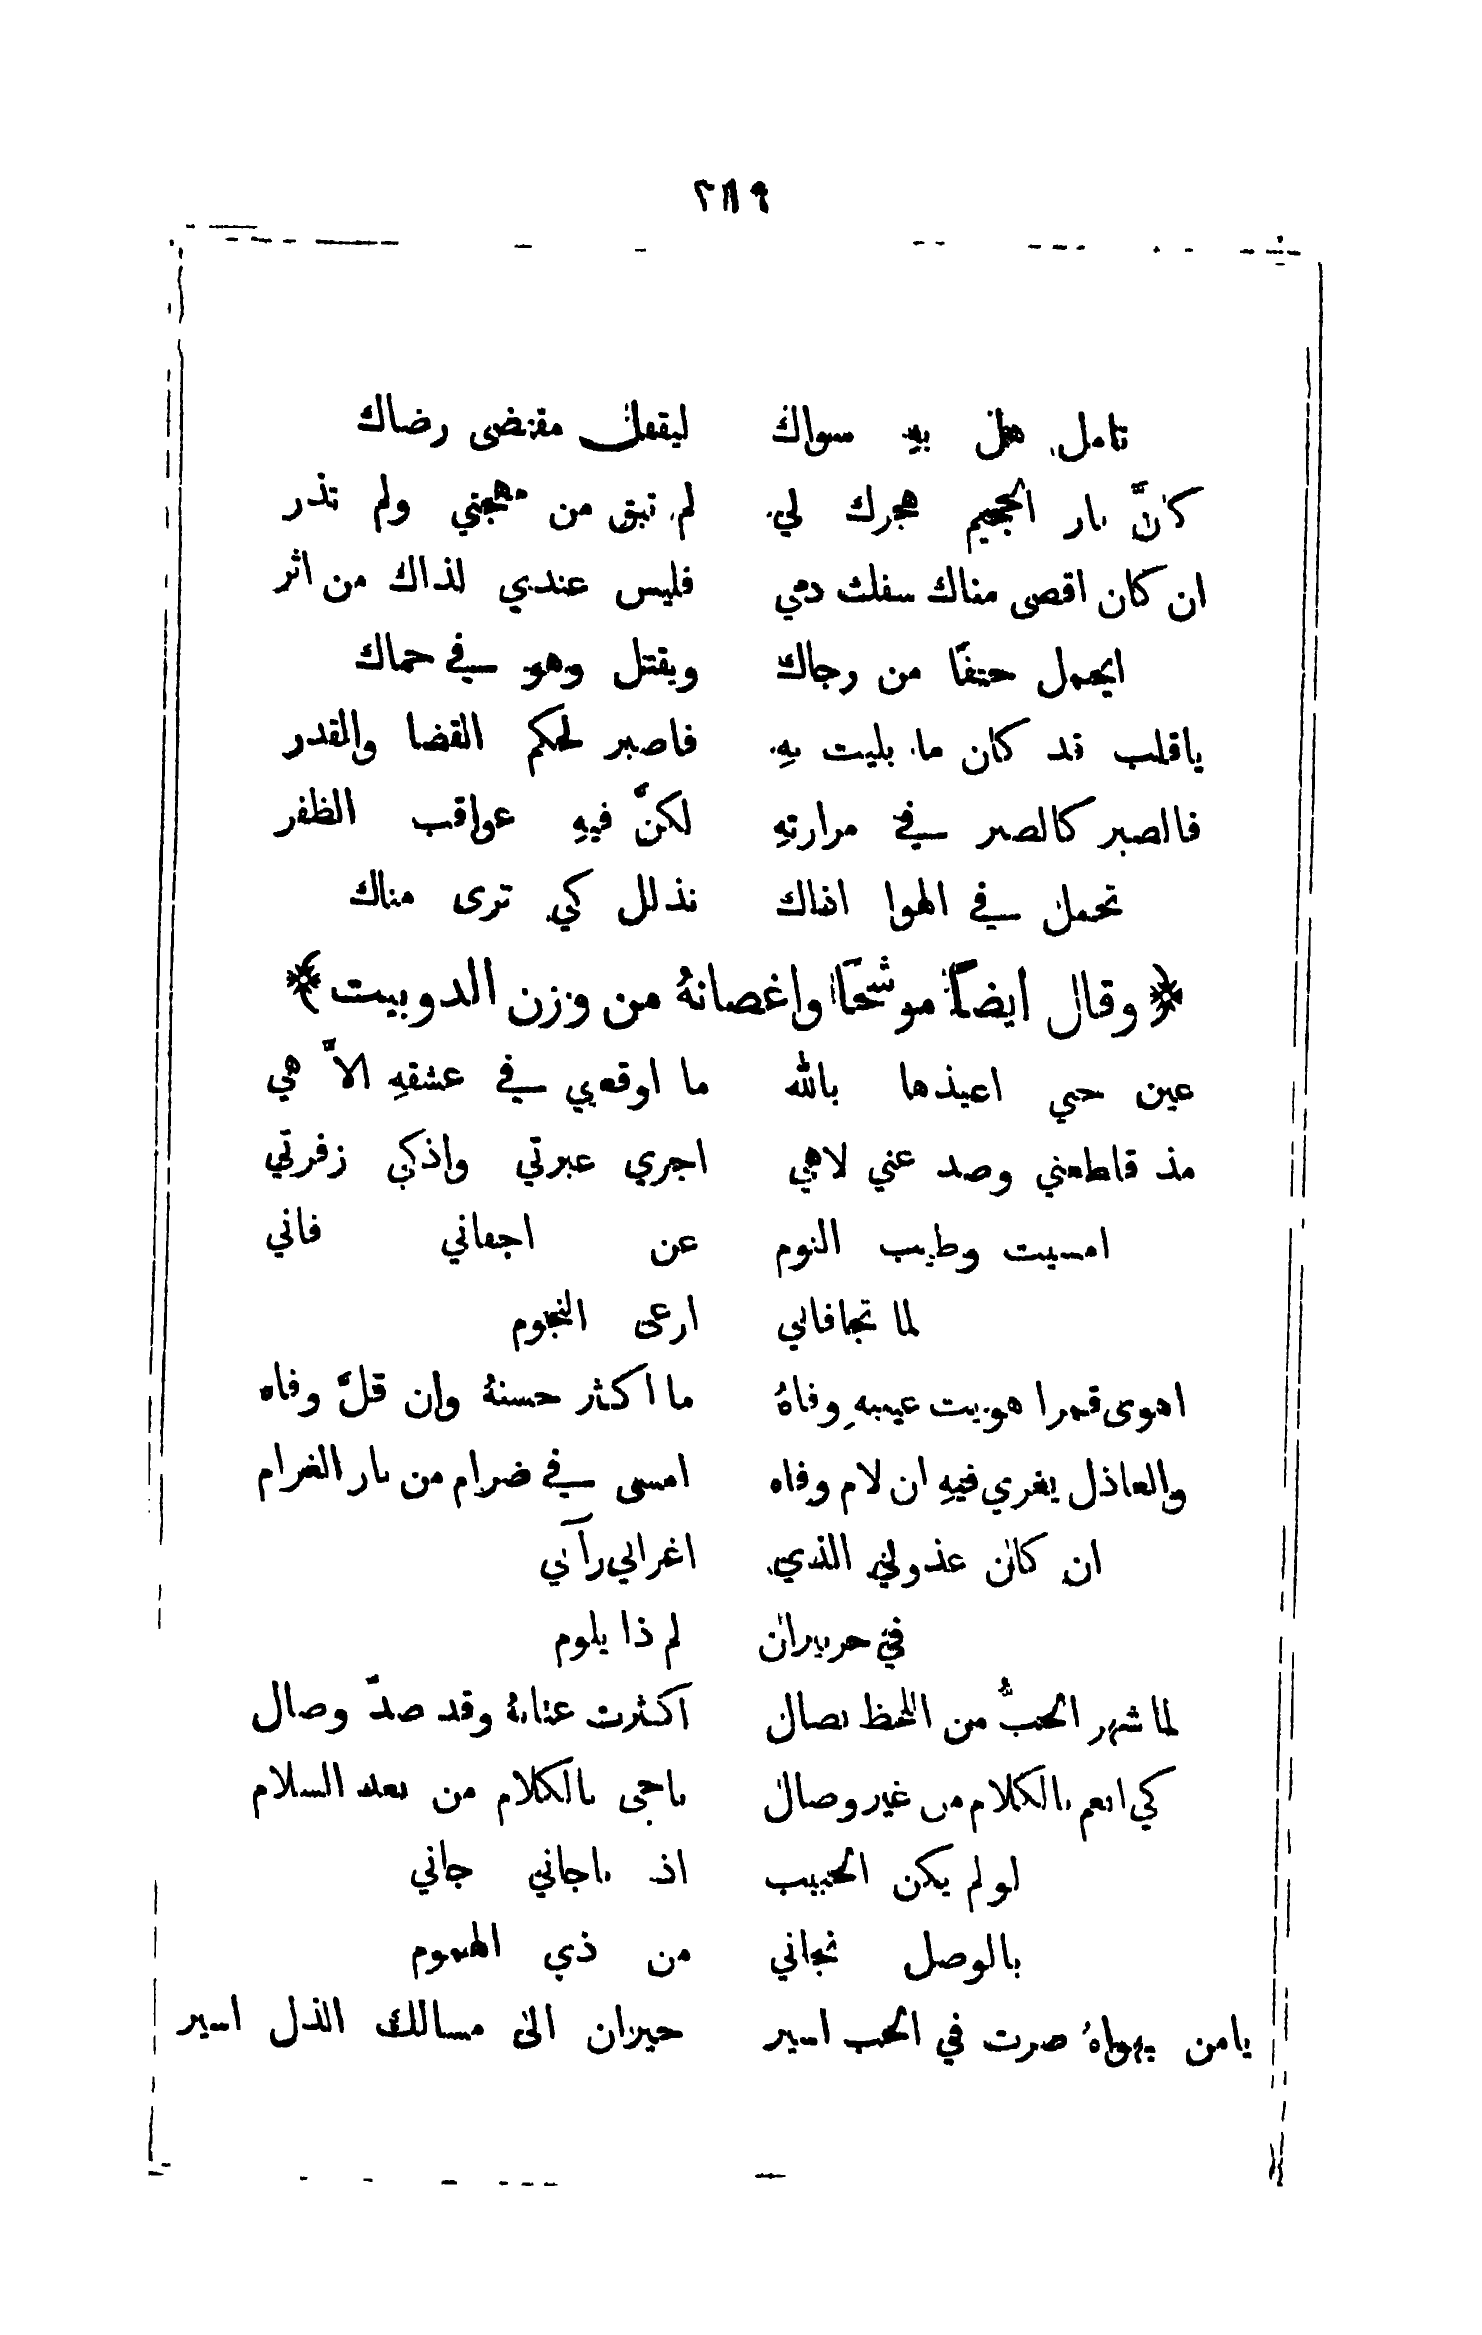 ٢١٩
تامل هل به سواك ليقفل مقتضى رضاك
كانَّ نار الجحيم هجرك لي لم تبق من مهجتي ولم تذر
ان كان اقصى مناك سفك دمي فليس عندي لذاك من اثر
ايحمل حتفًا من رجاك ويقتل وهو في حماك
ياقلب قد كان ما بليت بهِ فاصبر لحكم القضا والقدر
فالصبر كالصبر في مرارتهِ لكنَّ فيهِ عواقب الظفر
تحمل في الهوا اذاك تذلل كي ترى مناك
﴿ وقال ايضًا موشحًا واغصانهُ من وزن الدوبيت ﴾
عين حبي اعيذها بالله ما اوقعني في عشقهِ الاَّ هي
مذ قاطعني وصد عني لاهي اجري عبرتي واذكي زفرتي
امسيت وطيب النوم عن اجفاني فاني
لما تجافاني ارعى النجوم
اهوى قمرا هويت عيبه وفاهُ ما اكثر حسنهُ وان قلَّ وفاه
والعاذل يغري فيهِ ان لام وفاه امسى في ضرام من نار الغرام
ان كان عذولي الذي اغراني رآني
في حربيران لم ذا يلوم
لما شهر الحبُّ من اللحظ نصال اكثرت عنابهُ وقد صدَّ وصال
كي انعم بالكلام من غير وصال ناجى بالكلام من بعد السلام
لو لم يكن الحبيب اذ ناجاني جاني
بالوصل نجاني من ذي الهموم
يامن يهواهُ صرت في الحب اسير حيران الى مسالك الذل اسير